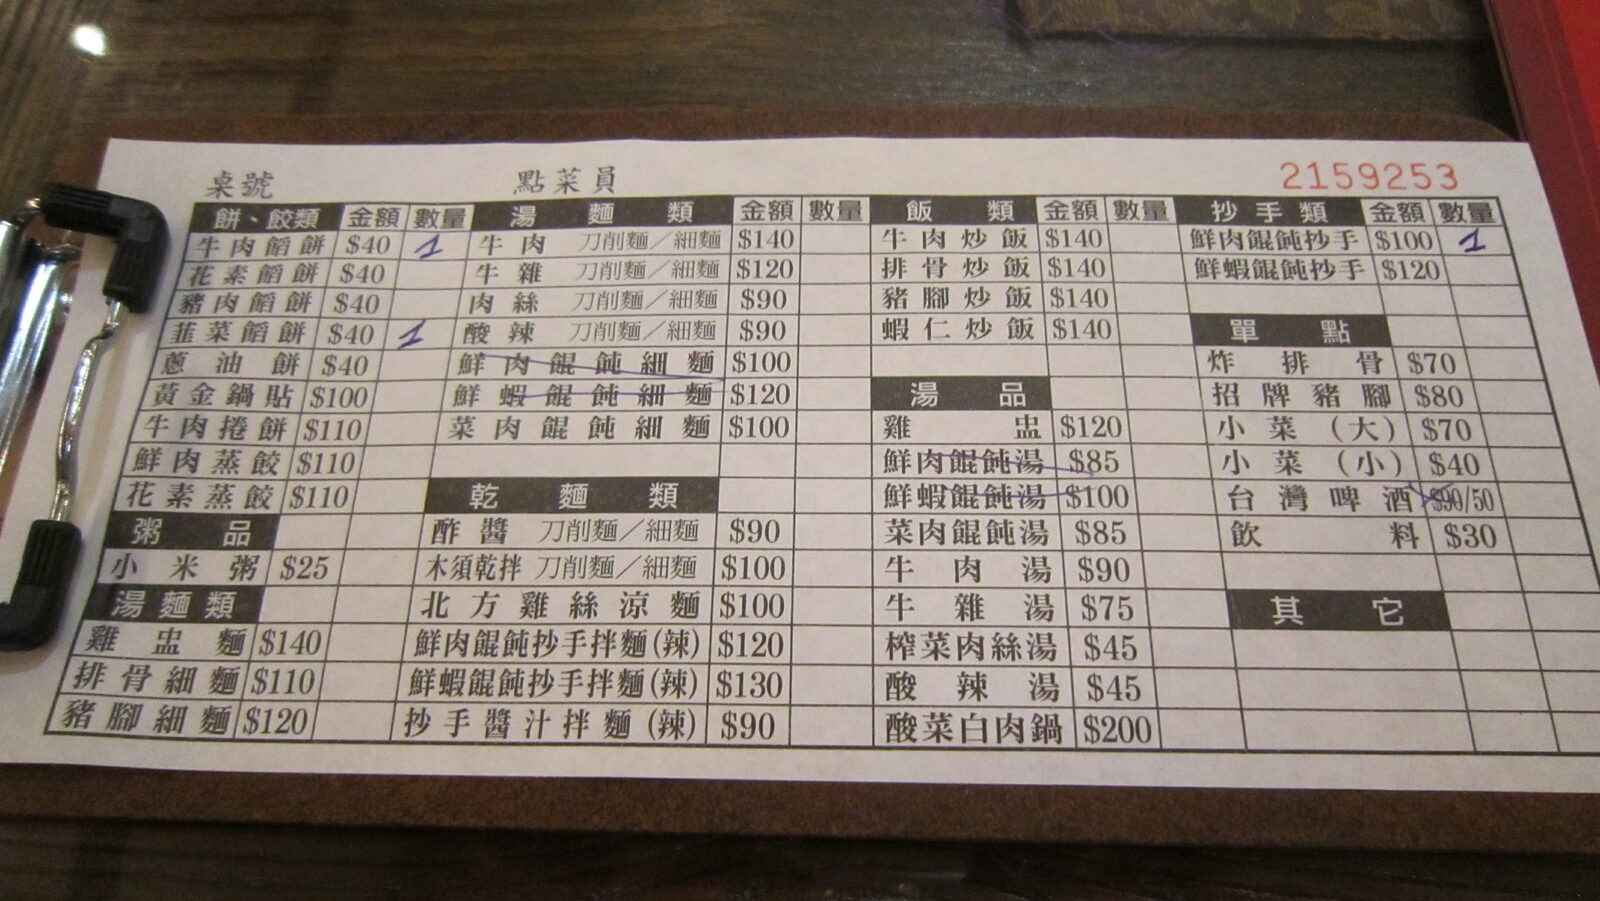 桌號 點菜員 2159253
餅、餃類 金額 數量 湯麵類 金額 數量 飯類 金額 數量 抄手類 金額 數量
牛肉餡餅 $40 1 牛肉 刀削麵／細麵 $140 牛肉炒飯 $140 鮮肉餛飩抄手 $100 1
花素餡餅 $40 牛雜 刀削麵／細麵 $120 排骨炒飯 $140 鮮蝦餛飩抄手 $120
豬肉餡餅 $40 肉絲 刀削麵／細麵 $90 豬腳炒飯 $140
韮菜餡餅 $40 1 酸辣 刀削麵／細麵 $90 蝦仁炒飯 $140 單點
蔥油餅 $40 鮮肉餛飩細麵 $100 炸排骨 $70
黃金鍋貼 $100 鮮蝦餛飩細麵 $120 湯品 招牌豬腳 $80
牛肉捲餅 $110 菜肉餛飩細麵 $100 雞盅 $120 小菜（大） $70
鮮肉蒸餃 $110 鮮肉餛飩湯 $85 小菜（小） $40
花素蒸餃 $110 乾麵類 鮮蝦餛飩湯 $100 台灣啤酒 $90/50
粥品 酢醬 刀削麵／細麵 $90 菜肉餛飩湯 $85 飲料 $30
小米粥 $25 木須乾拌 刀削麵／細麵 $100 牛肉湯 $90
湯麵類 北方雞絲涼麵 $100 牛雜湯 $75 其它
雞盅麵 $140 鮮肉餛飩抄手拌麵(辣) $120 榨菜肉絲湯 $45
排骨細麵 $110 鮮蝦餛飩抄手拌麵(辣) $130 酸辣湯 $45
豬腳細麵 $120 抄手醬汁拌麵(辣) $90 酸菜白肉鍋 $200